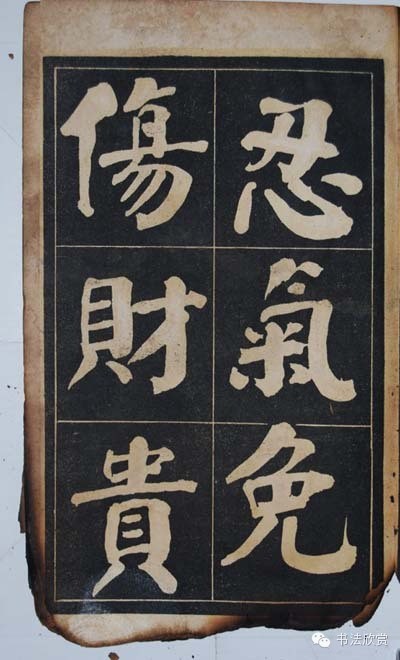 忍氣免
傷財貴
书法欣赏